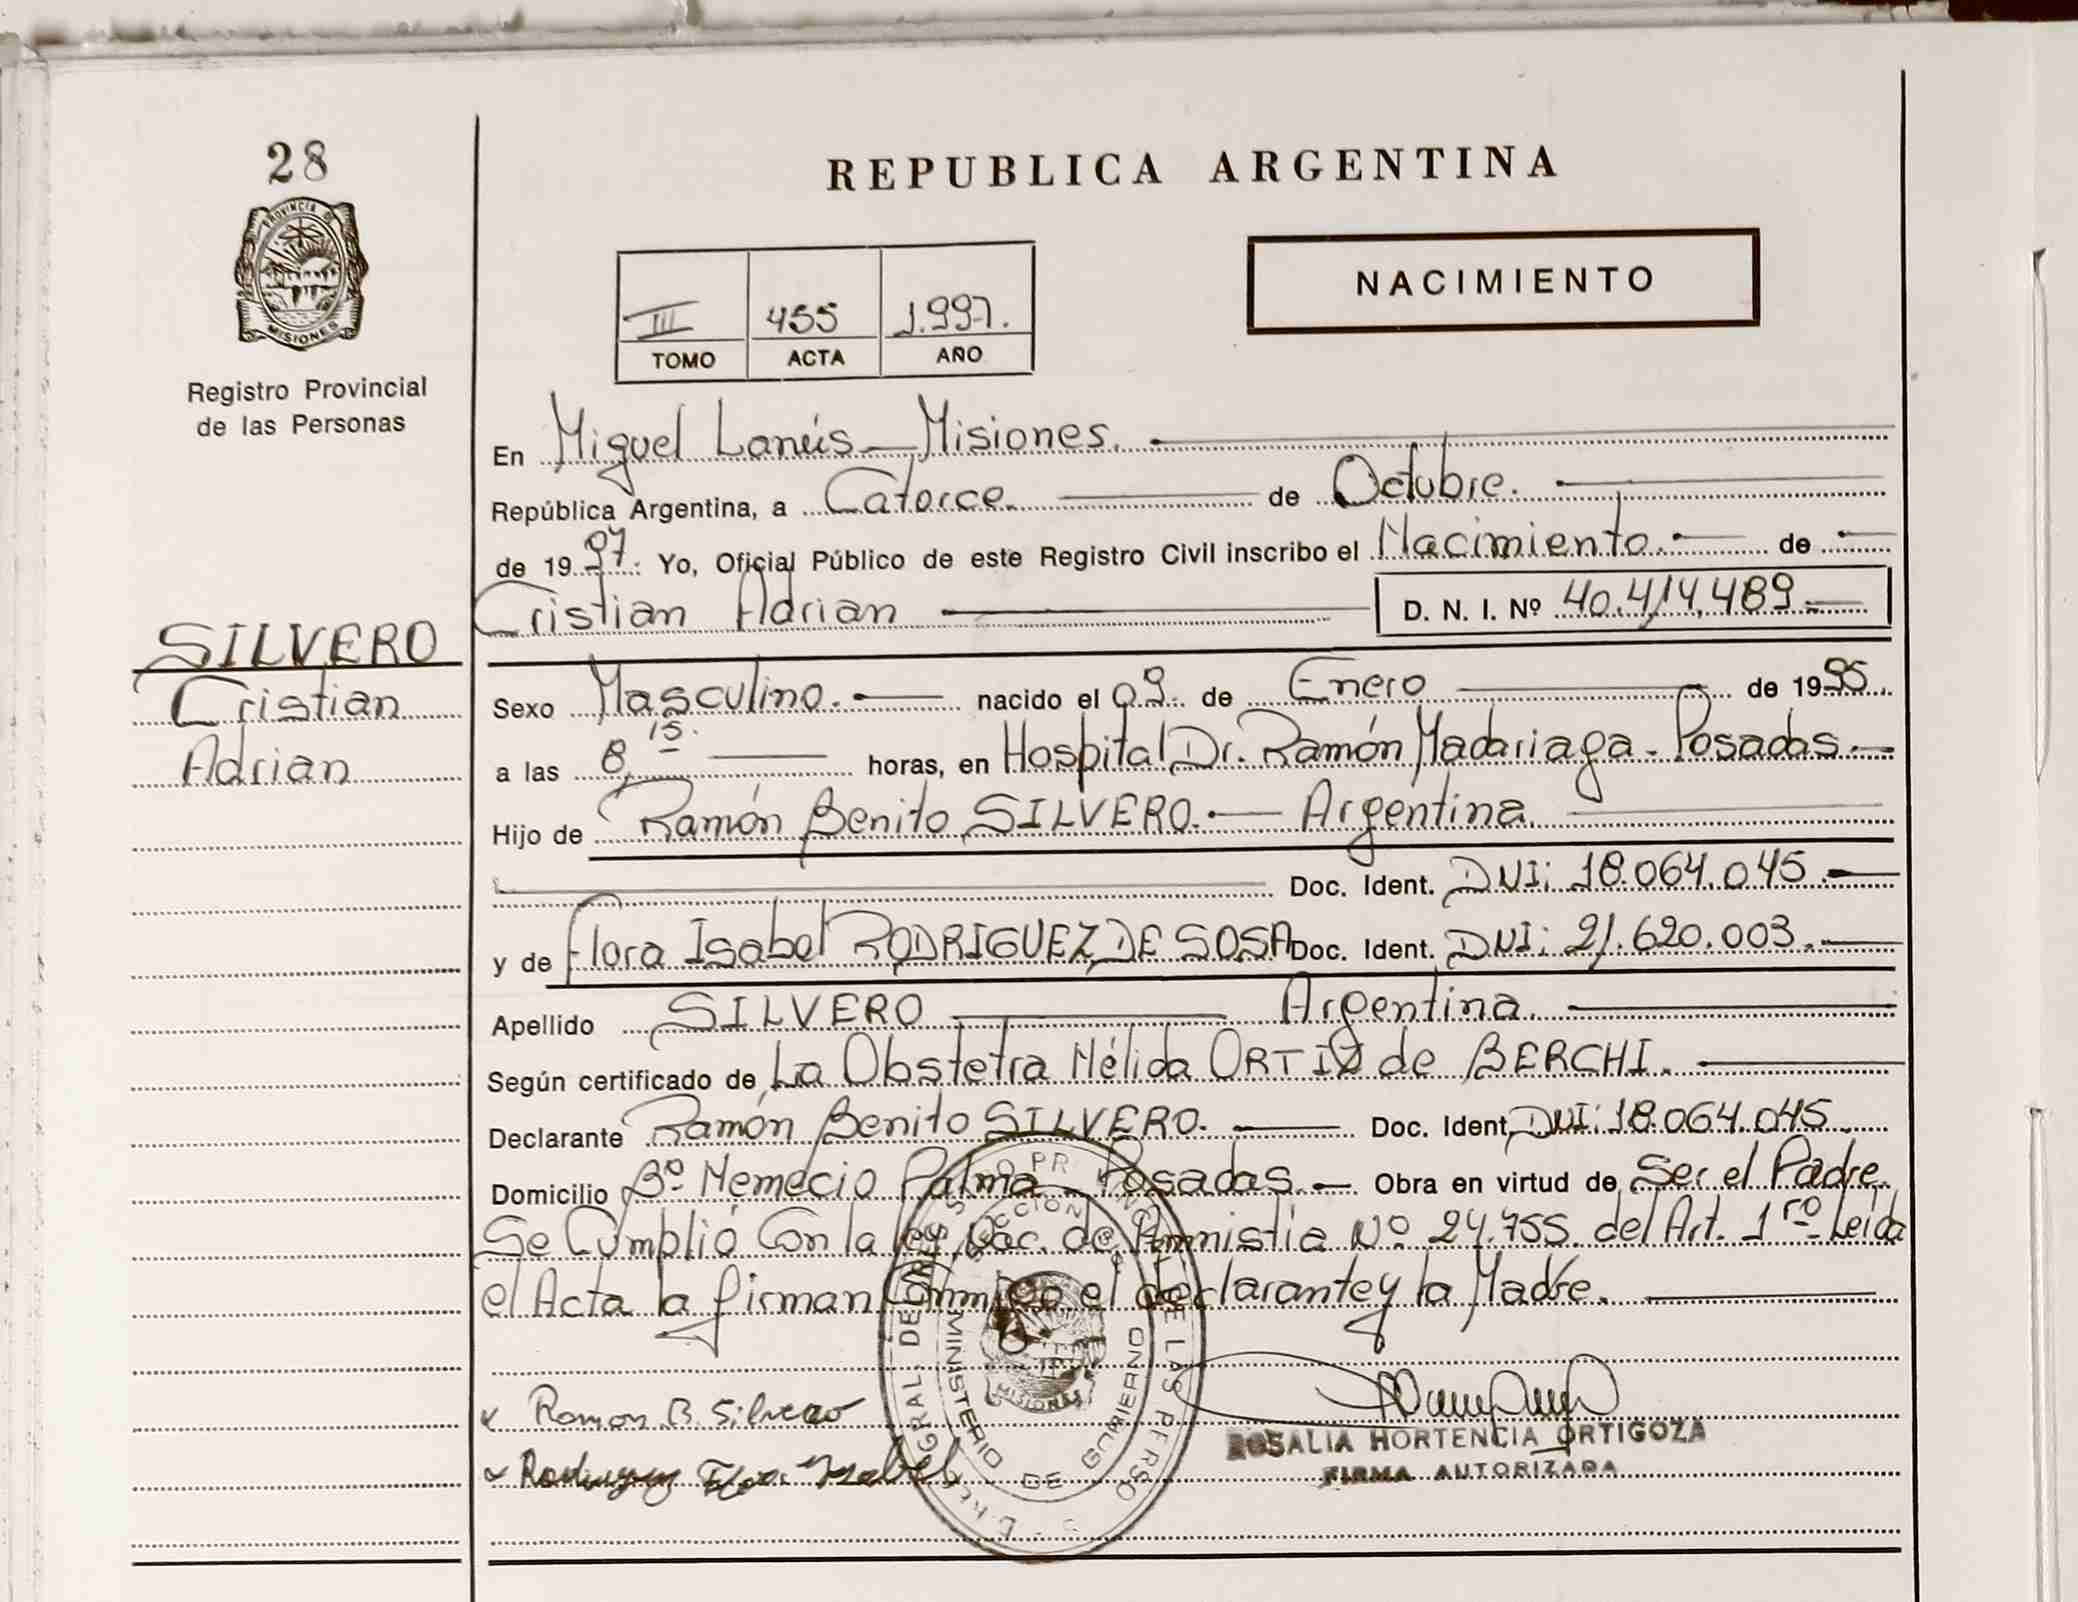 28
REPUBLICA ARGENTINA
NACIMIENTO
III 455 1.997.
TOMO ACTA AÑO
PROVINCIA DE
MISIONES
Registro Provincial
de las Personas
En Miguel Lanús - Misiones.
República Argentina, a Catorce. de Octubre.
de 1997. Yo, Oficial Público de este Registro Civil inscribo el Nacimiento. de
Cristian Adrian D. N. I. Nº 40.414.489
SILVERO
Cristian
Adrian
Sexo Masculino. nacido el 09. de Enero de 1995.
a las 8,15. horas, en Hospital Dr. Ramón Madariaga - Posadas
Hijo de Ramón Benito SILVERO. Argentina
Doc. Ident. DNI: 18.064.045
y de Flora Isabel RODRIGUEZ DE SOSA Doc. Ident. DNI: 21.620.003.
Apellido SILVERO Argentina
Según certificado de La Obstetra Nélida ORTIZ de BERCHI.
Declarante Ramón Benito SILVERO. Doc. Ident. DNI: 18.064.045
Domicilio Bº Nemecio Palma - Posadas. Obra en virtud de Ser el Padre
Se Cumplió Con la Ley Nac. de Amnistia Nº 24.755 del Art. 1ro Leida
el Acta la firman Conmigo el declarante y la Madre.
Ramon B. Silvero
Rodriguez Flora Isabel
ROSALIA HORTENCIA ORTIGOZA
FIRMA AUTORIZADA
MINISTERIO DE GOBIERNO
MISIONES